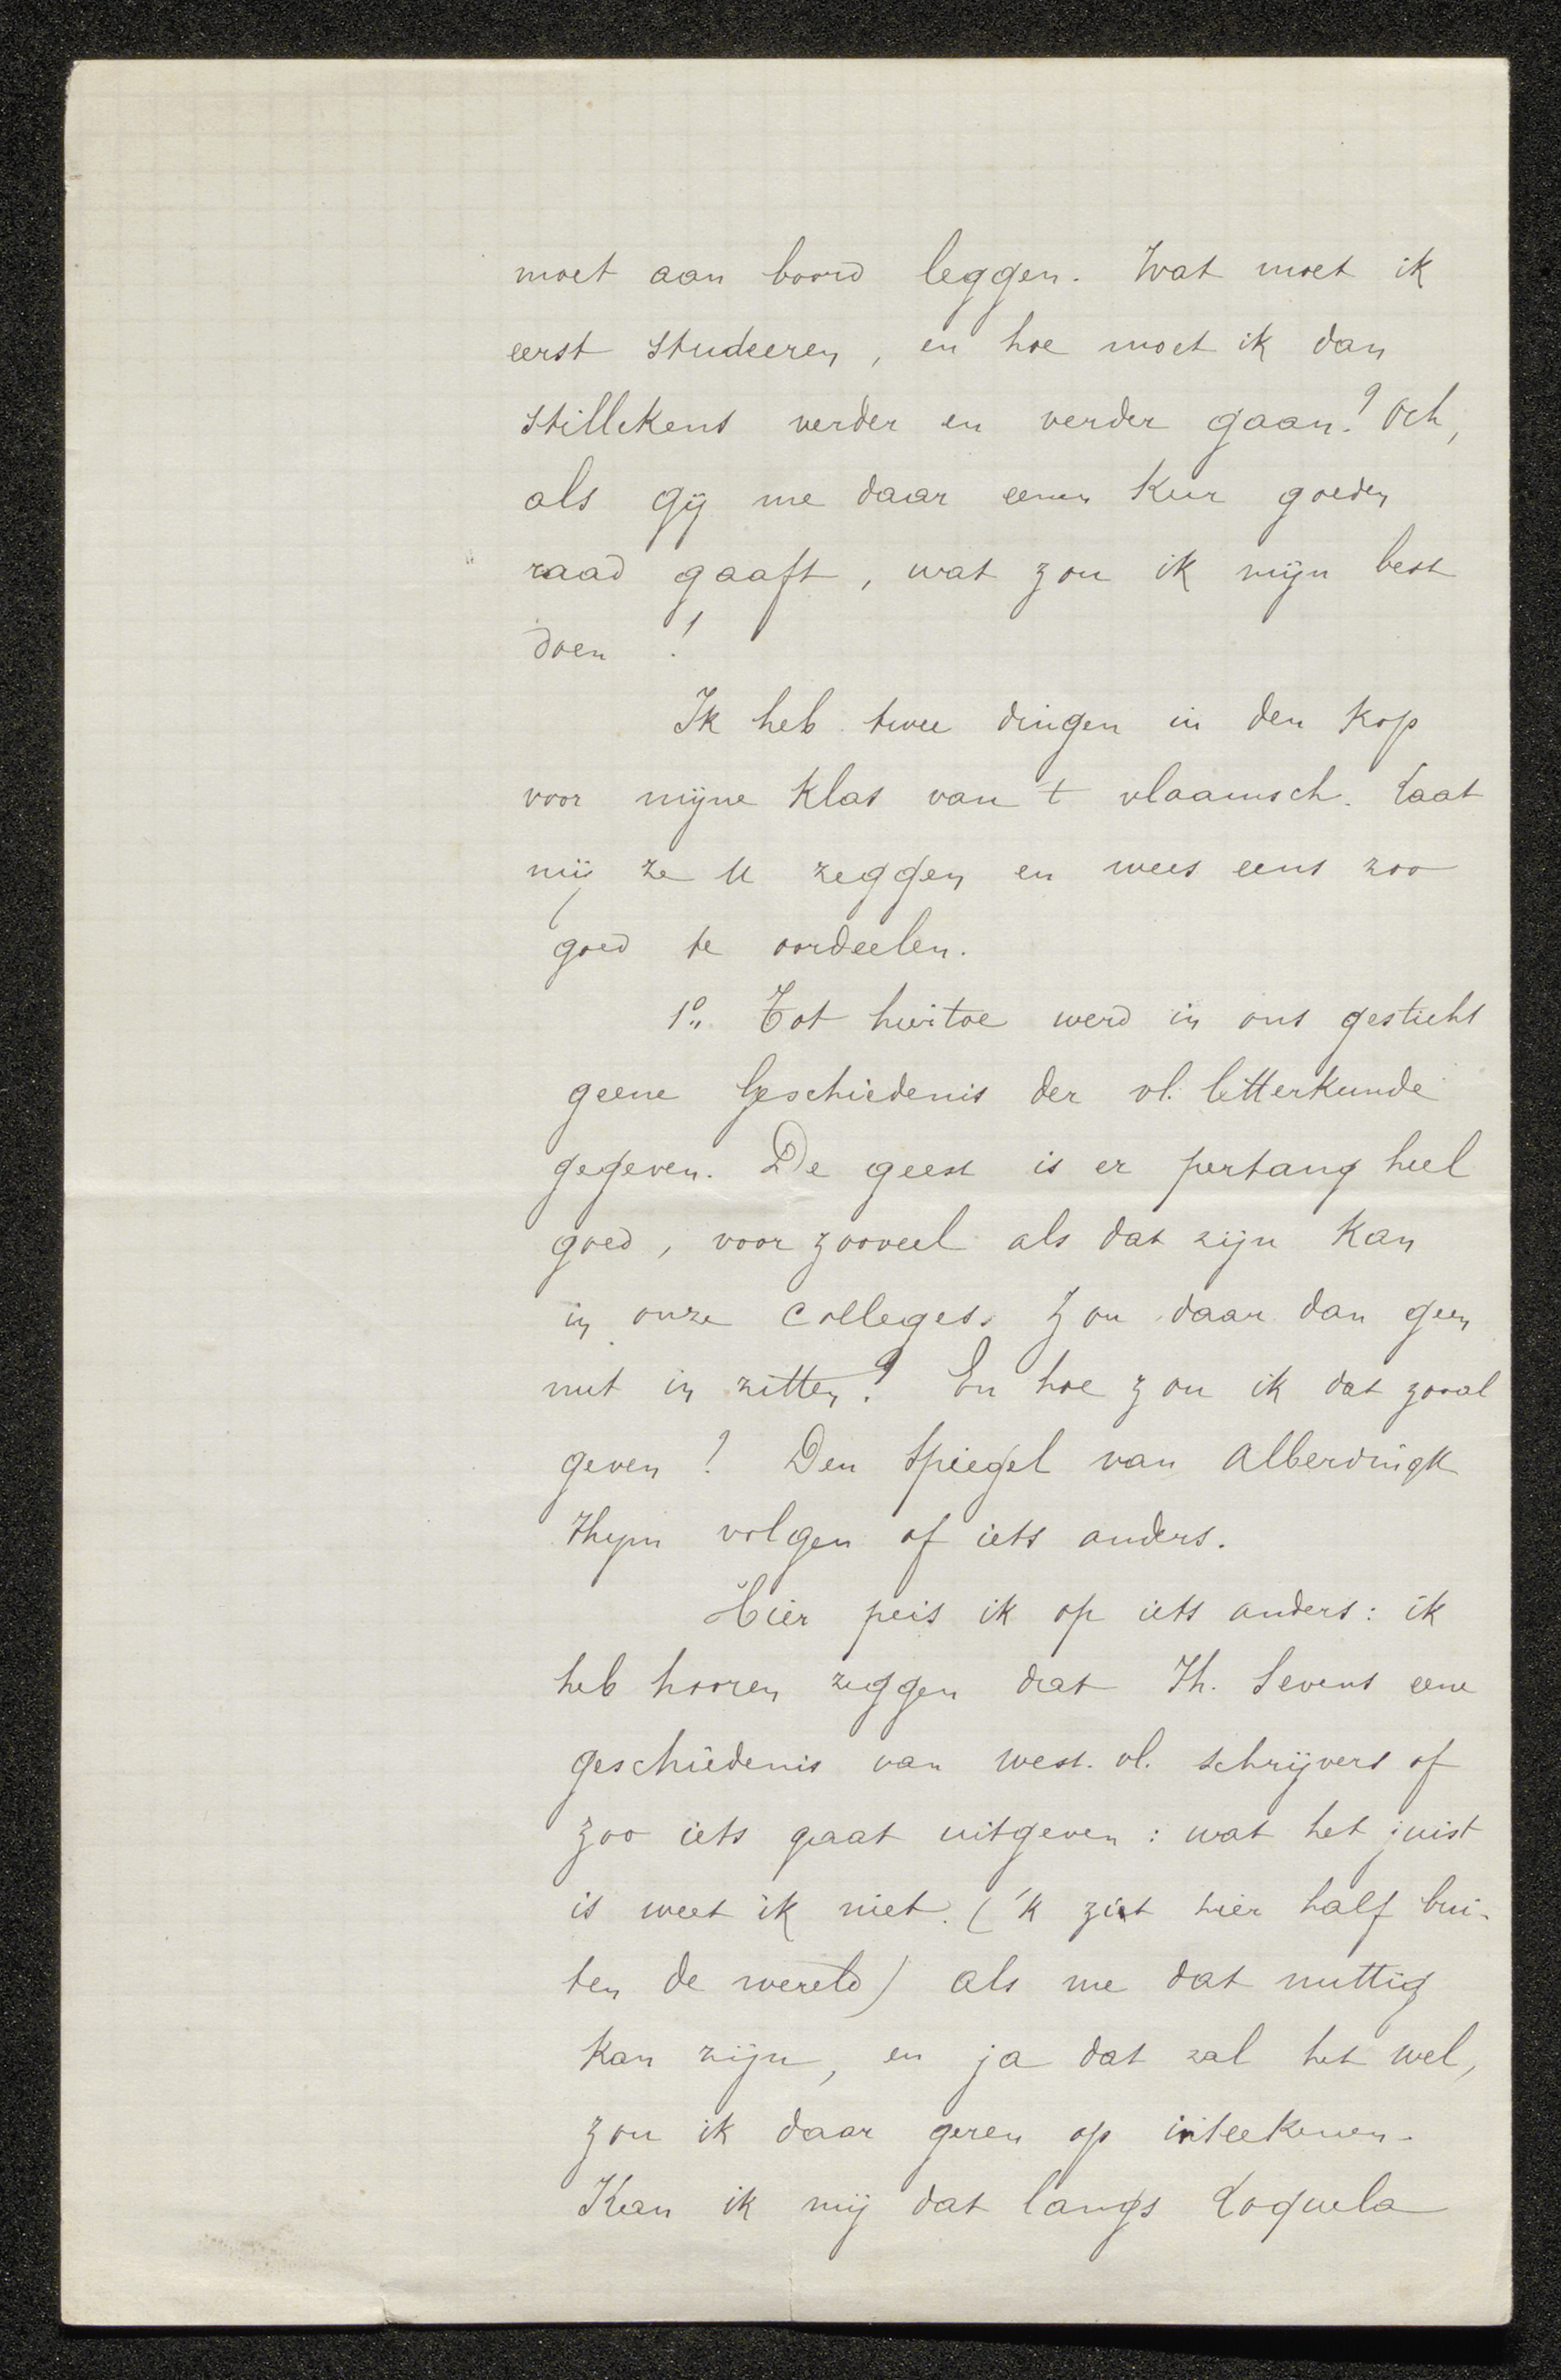 moet aan boord leggen. Wat moet ik
eerst studeeren, en hoe moet ik dan
stillekens verder en verder gaan? Och,
als gij me daar eenen keer goeden
raad gaaft, wat zou ik mijn best
doen!
Ik heb twee dingen in den kop
voor mijne klas van 't vlaamsch. Laat
mij ze U zeggen en wees eens zoo
goed te oordeelen.
1º. Tot hiertoe werd in ons gesticht
geene Geschiedenis der vl. letterkunde
gegeven. De geest is er pertang heel
goed, voor zooveel als dat zijn kan
in onze Colleges. Zou daar dan geen
nut in zitten? En hoe zou ik dat zooal
geven? Den Spiegel van Alberdingk
Thym volgen of iets anders.
Hier peis ik op iets anders: ik
heb hooren zeggen dat Th. Sevens eene
geschiedenis van west. vl. schrijvers of
zoo iets gaat uitgeven: wat het juist
is weet ik niet. ('k zit hier half bui-
ten de wereld) als me dat nuttig
kan zijn, en ja dat zal het wel,
zou ik daar geren op inteekenen.
Kan ik mij dat langs Loquela